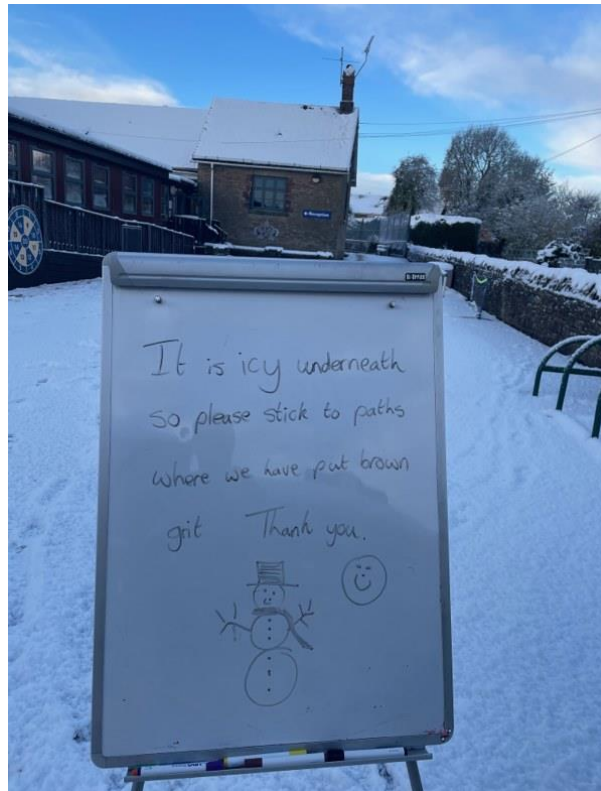 Reception
It is icy underneath
so please stick to paths
where we have put brown
grit Thank you.